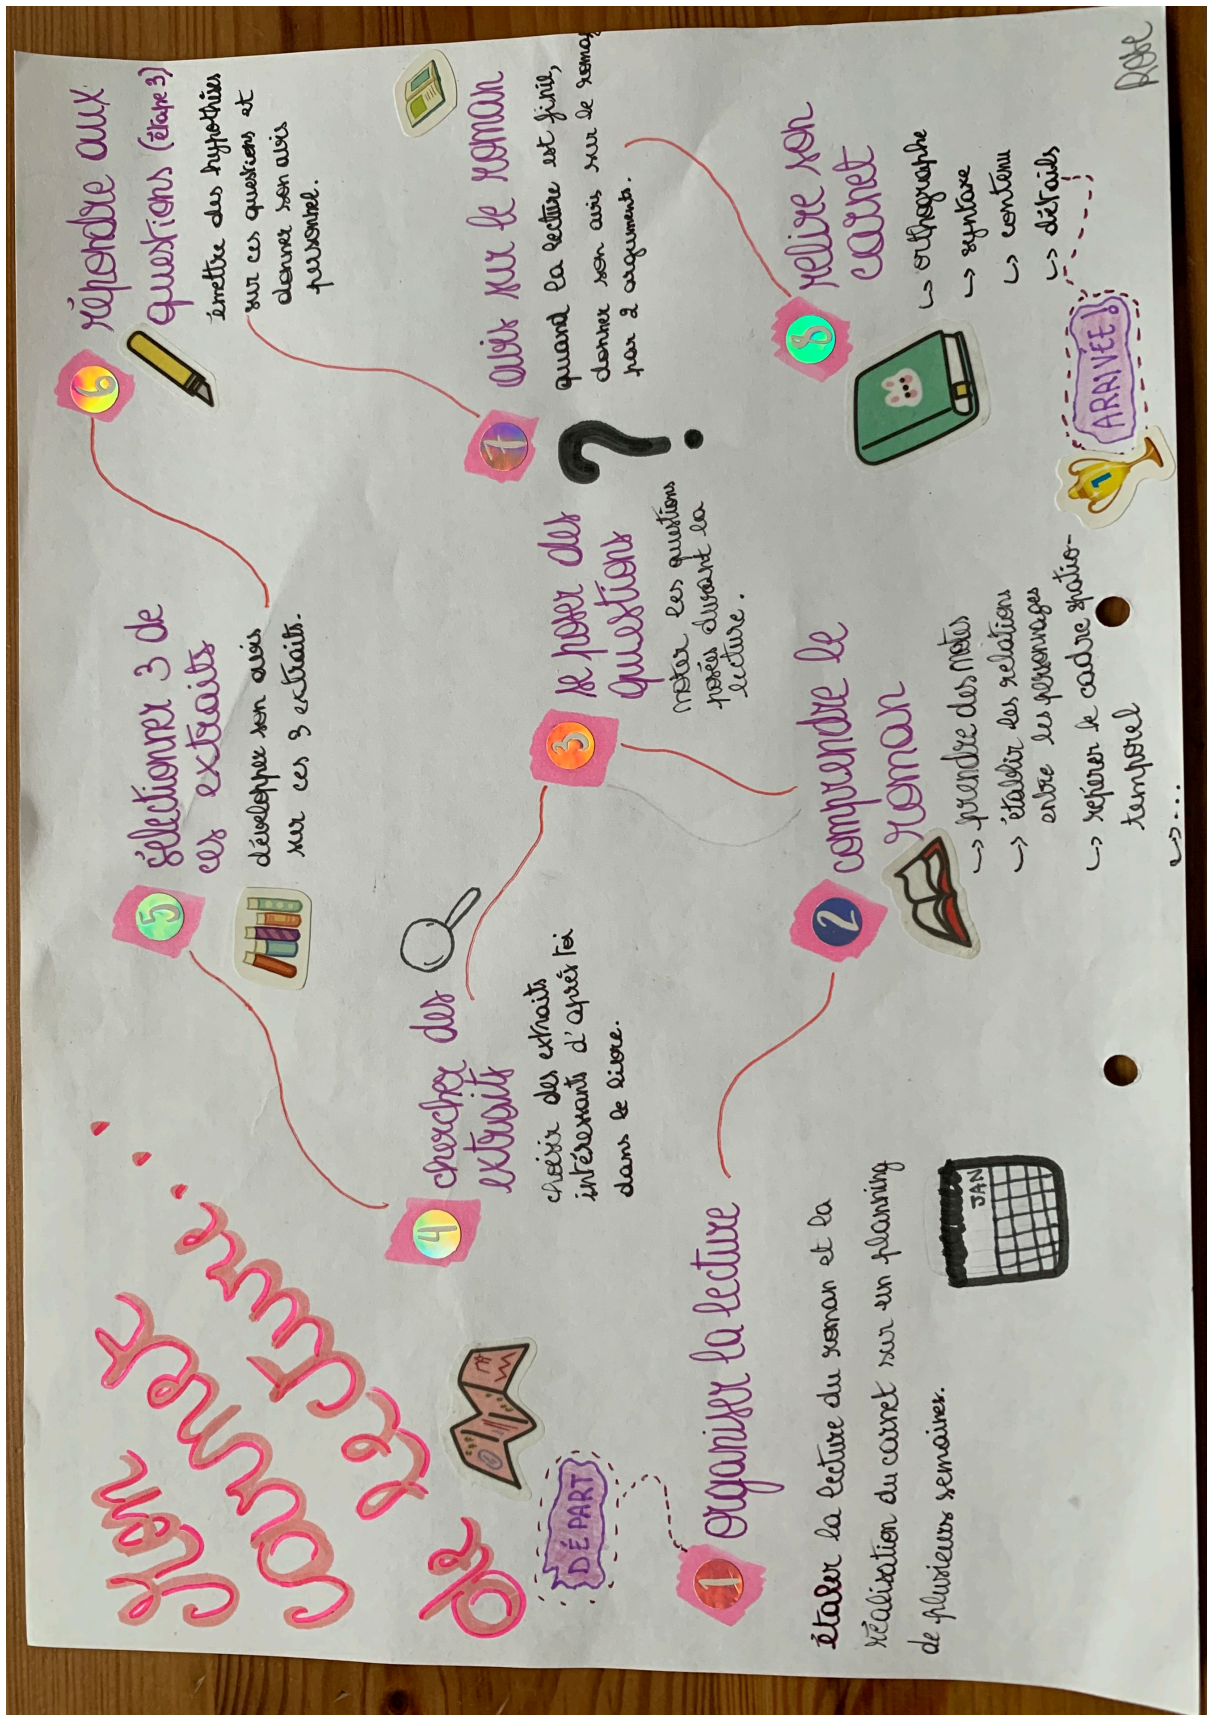 Mon
carnet
de lecture...
DÉPART
1
organiser la lecture
étaler la lecture du roman et la
réalisation du carnet sur un planning
de plusieurs semaines.
JAN
2
comprendre le
roman
↳ prendre des notes
↳ établir les relations
entre les personnages
↳ repérer le cadre spatio-
temporel
↳ ...
3
se poser des
questions
noter les questions
posées durant la
lecture.
?
4
chercher des
extraits
choisir des extraits
intéressants d'après toi
dans le livre.
5
sélectionner 3 de
ces extraits
développer son avis
sur ces 3 extraits.
6
répondre aux
questions (étape 3)
émettre des hypothèses
sur ces questions et
donner son avis
personnel.
7
avis sur le roman
quand la lecture est finie,
donner son avis sur le roman
par 2 arguments.
8
relire son
carnet
↳ orthographe
↳ syntaxe
↳ contenu
↳ détails
ARRIVÉE!
1
Rose